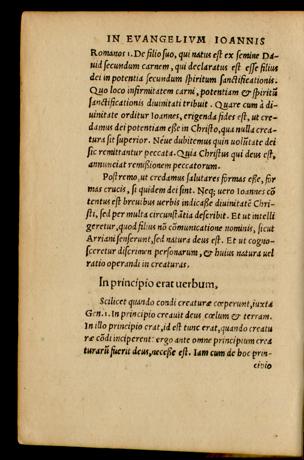 IN EVANGELIVM IOANNIS
Romanos 1. De filio suo, qui natus est ex semine Da-
uid secundum carnem, qui declaratus est esse filius
dei in potentia secundum spiritum sanctificationis.
Quo loco infirmitatem carni, potentiam & spiritū
sanctificationis diuinitati tribuit. Quare cum à di-
uinitate orditur Ioannes, erigenda fides est, ut cre-
damus dei potentiam esse in Christo, qua nulla crea-
tura sit superior. Neue dubitemus quin uolūtate dei
sic remittantur peccata. Quia Christus qui deus est,
annunciat remissionem peccatorum.
Postremo, ut credamus salutares formas esse, for
mas crucis, si quidem dei sint. Neq; uero Ioannes cō
tentus est breuibus uerbis indicasse diuinitatē Chri-
sti, sed per multa circunstātia describit. Et ut intelli
geretur, quod filius nō cōmunicatione nominis, sicut
Arriani senserunt, sed natura deus est. Et ut cogno-
sceretur discrimen personarum, & huius natura uel
ratio operandi in creaturas.
In principio erat uerbum,
Scilicet quando condi creaturæ cœperunt, iuxta
Gen. 1. In principio creauit deus cœlum & terram.
In illo principio erat, id est tunc erat, quando creatu
ræ cōdi inciperent: ergo ante omne principium crea
turarū fuerit deus, necesse est. Iam cum de hoc prin-
cipio